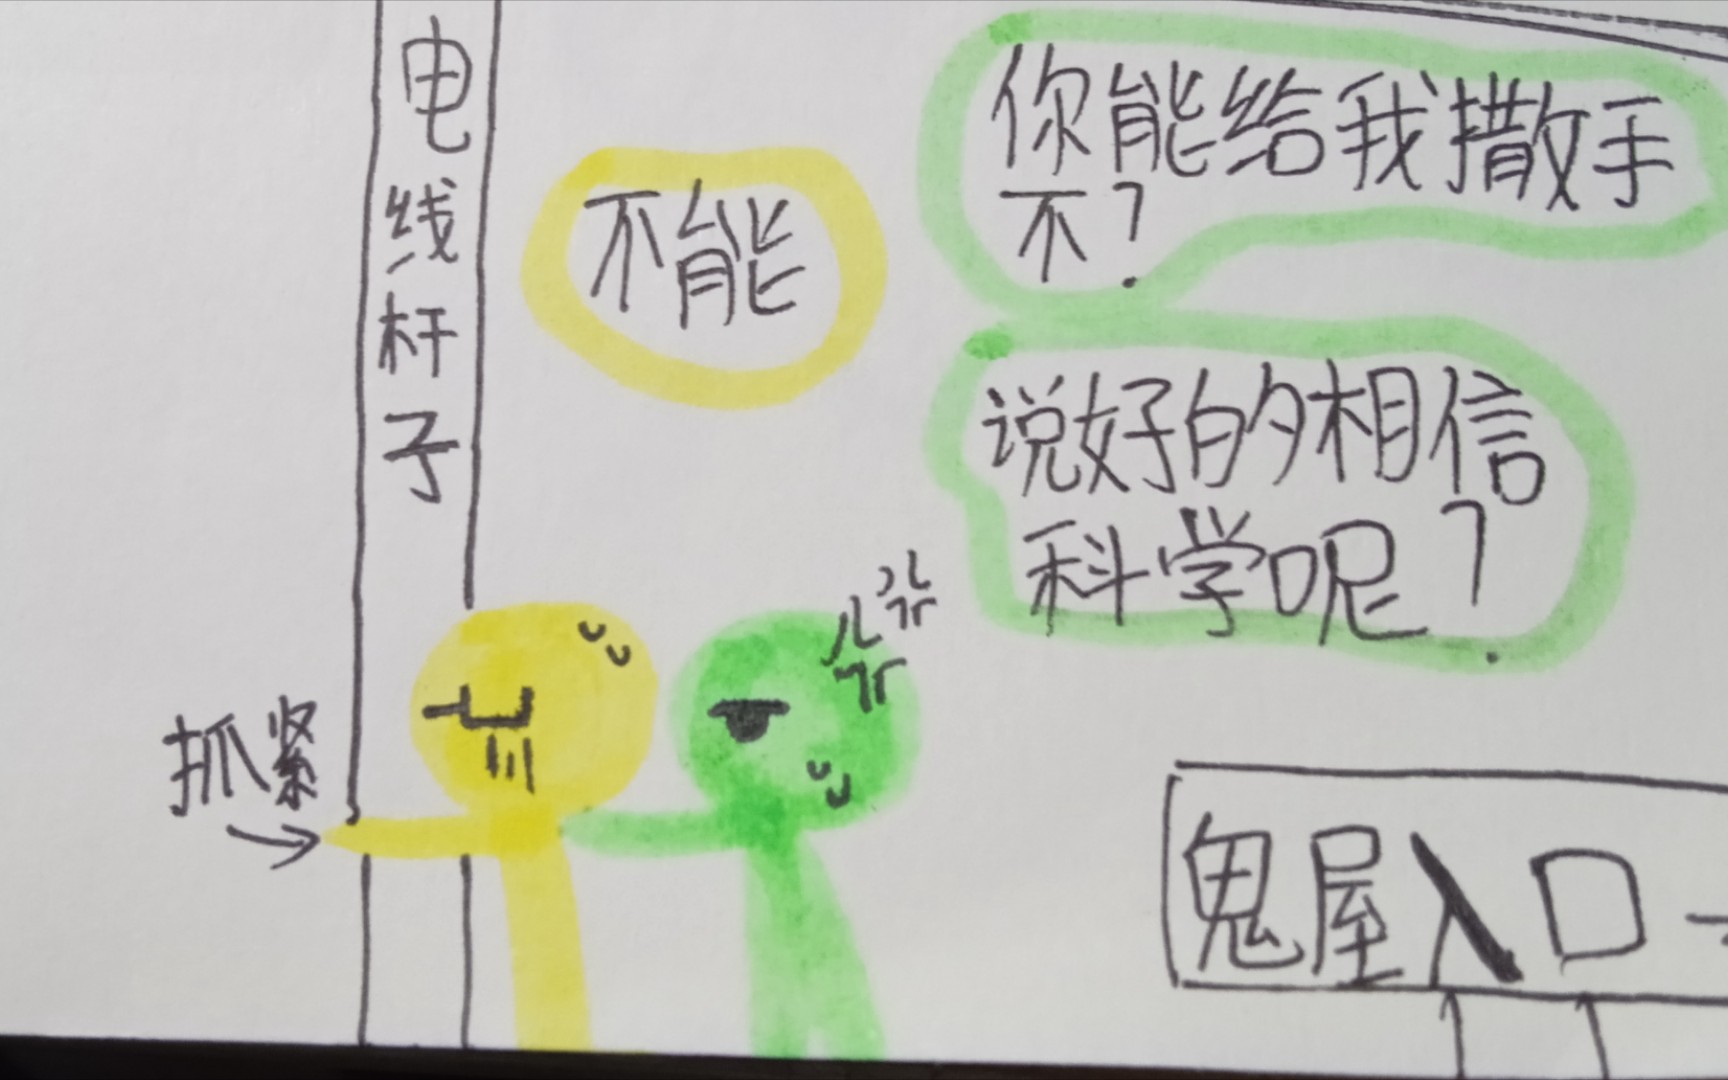 电线杆子
不能
你能给我撒手
不?
说好的相信
科学呢?
抓紧
鬼屋入口